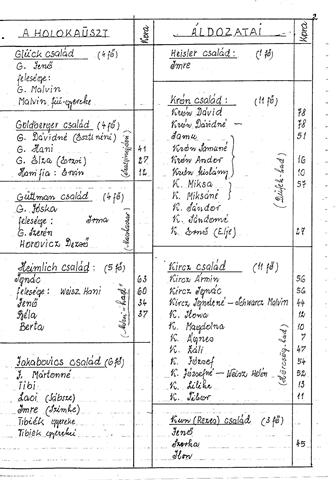 A HOLOKAUSZT
Kora
Glück család (4 fő)
G. Jenő
felesége:
G. Malvin
Malvin fiú-gyereke
Goldberger család (4 fő)
G. Dávidné (Eszti néni)
G. Hani 41
G. Elza (Erzsi) 27
Hani fia: Ervin 12
Güttman család (4 fő)
G. Jóska
felesége: Irma
G. Szerén
Horovicz Dezső
Heimlich család: (5 fő)
Ignác 63
felesége: Weisz Hani 60
Jenő 34
Béla 37
Berta
Jakabovics család (6 fő)
J. Mártonné
Tibi
Laci
Imre
Tibiék gyereke
Tibiék gyerekei
ÁLDOZATAI
Kora
Heisler család: (1 fő)
Imre
Krón család: (11 fő)
Krón Dávid 78
Krón Dávidné 78
Samu 51
Krón Samuné
Krón Andor 16
Krón 10
K. Miksa 57
K. Miksáné
K. Sándor
K. Sándorné
K. Ernő 27
Kircz család (11 fő)
Kircz Ármin 56
Kircz Ignác 56
Kircz Ignácné - Schwarcz Malvin 44
K. Ilona 12
K. Magdolna 10
K. Ágnes 7
K. Záli 47
K. József 54
K. Józsefné - Weisz Helén 52
K. Lilike 13
K. Tibor 11
Kun (Rezes) család (3 fő)
Jenő
Szerka 45
Ilon